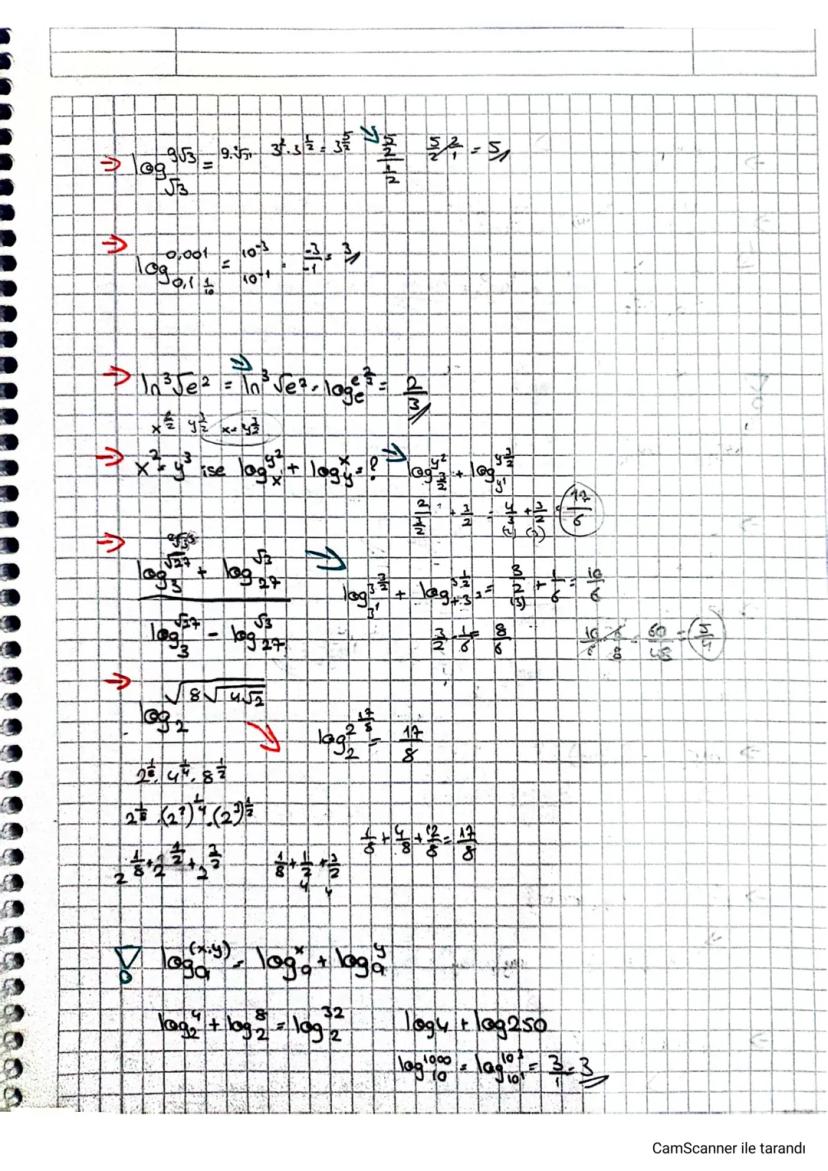 → log_√3 9√3 = 9·√3 3²·3^1/2 = 3^5/2 → (5/2)/(1/2) 5/2·2/1 = 5
→ log_0,1 0,001 = 10^-3 / 10^-1 = -3/-1 = 3
1/10
→ ln ³√e² = ln ³√e² = log_e e^2/3 = 2/3
x = y^3/2
→ x² = y³ ise log_x y² + log_y x = ? → log_y^3/2 y² + log_y¹ y^3/2
2/(3/2) + 3/2 = 4/3 + 3/2 = 17/6
(2) (3)
→ log_3 √27 + log_27 √3 → log_3¹ 3^3/2 + log_+3³ 3^1/2 = 3/2 + 1/6 = 10/6
(3)
log_3 √27 - log_27 √3 3/2 - 1/6 = 8/6 10/6 · 6/8 = 60/48 = 5/4
→ log_2 √8√4√2
log_2 2^17/8 = 17/8
2^1/8 · 4^1/4 · 8^1/2
2^1/8 · (2²)^1/4 · (2³)^1/2
1/8 + 4/8 + 12/8 = 17/8
2^1/8 + 2^1/2 + 2^3/2 1/8 + 1/2 + 3/2
4 4
! log_a (x·y) = log_a x + log_a y
log_2 4 + log_2 8 = log_2 32 log4 + log250
log_10 1000 = log_10¹ 10³ = 3/1 = 3
CamScanner ile tarandı